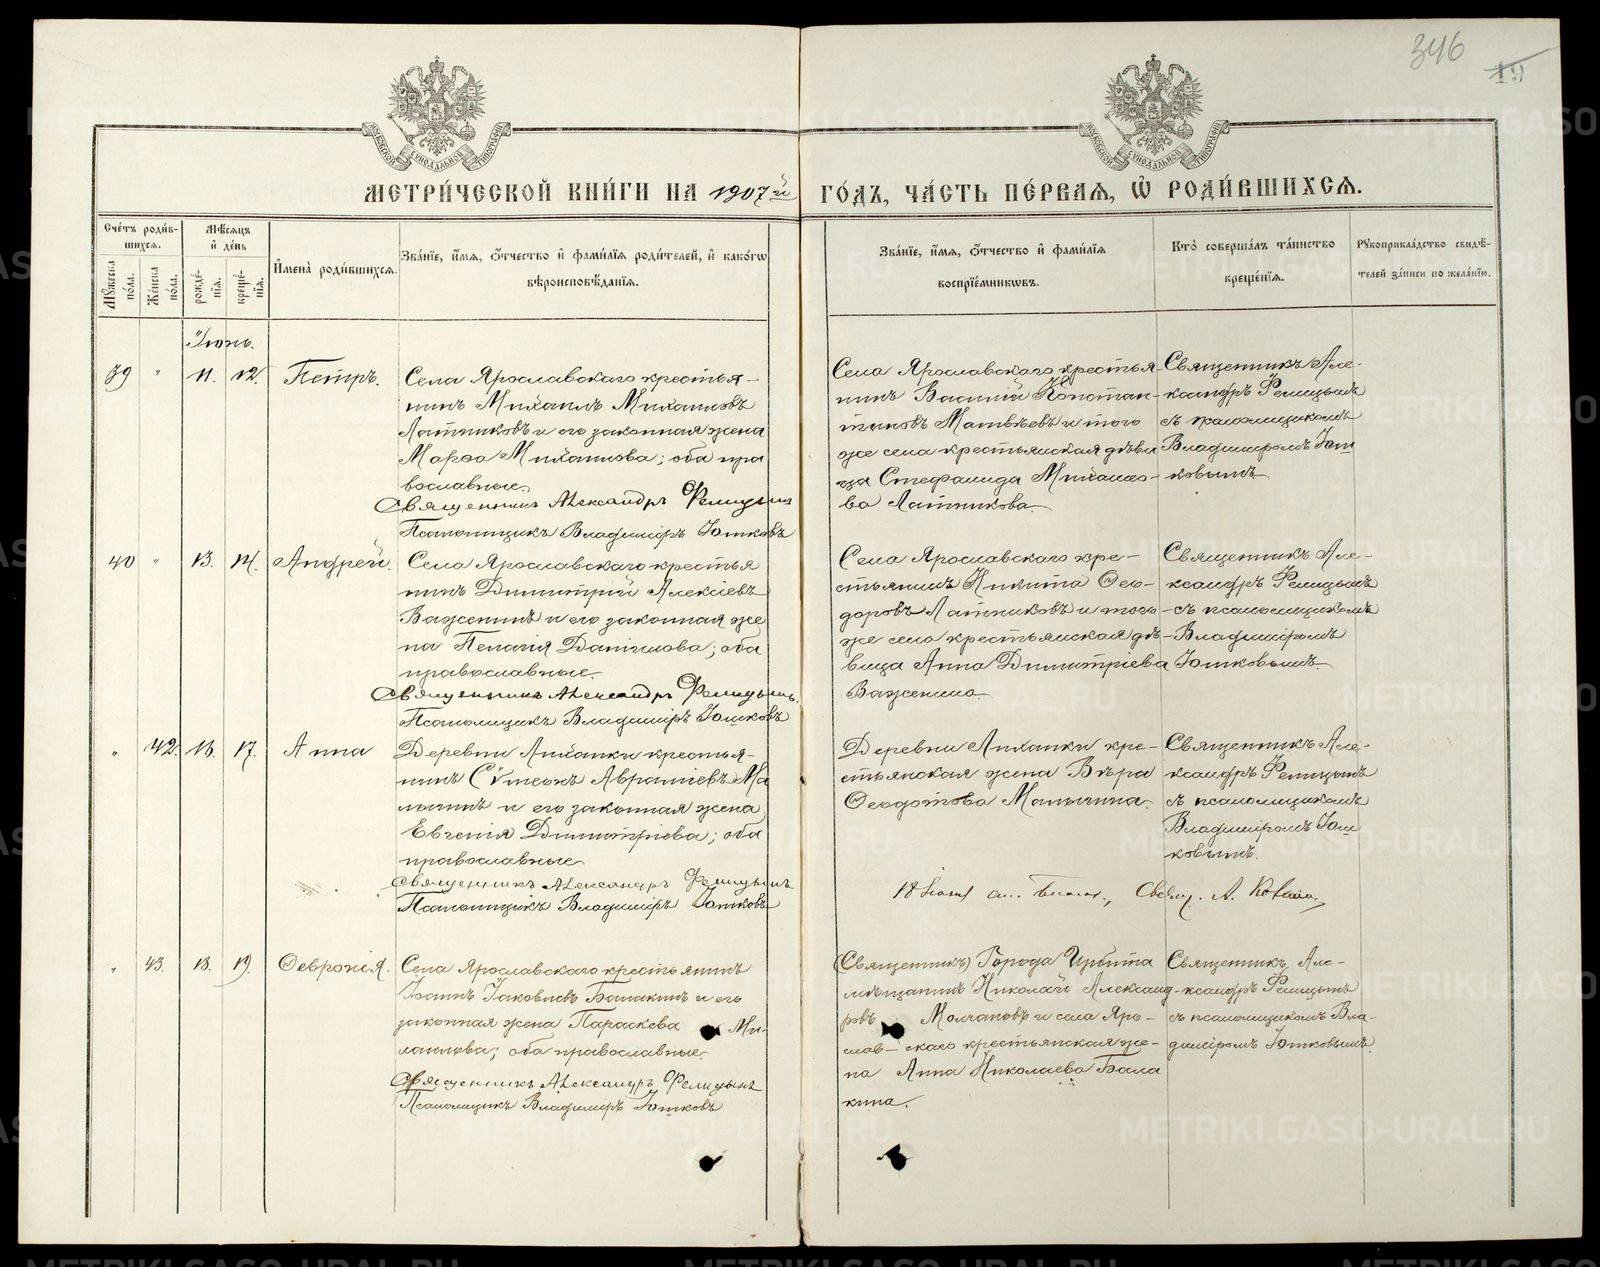 346
19
МОСКОВСКОЙ СУНОДАЛЬНОЙ ТИПОГРАФІИ
МОСКОВСКОЙ СУНОДАЛЬНОЙ ТИПОГРАФІИ
МЕТРИ́ЧЕСКОЙ КНИ́ГИ НА 1907й ГО́ДЪ, ЧА́СТЬ ПЕ́РВАЯ, Ѡ҆ РОДИ́ВШИХСЯ.
Сче́тъ роди́в-
шихся.
Мꙋ́жеска по́ла.
Же́нска по́ла.
Мѣ́сяцъ
и҆ де́нь
рожде́-
нїя.
креще́-
нїя.
И҆мена̀ роди́вшихся.
Зва́нїе, и҆́мя, ѻ҆́тчество и҆ фами́лїя роди́телей, и҆ како́гѡ
вѣроисповѣ́данїя.
Зва́нїе, и҆́мя, ѻ҆́тчество и҆ фами́лїя
воспрїе́мникѡвъ.
Кто̀ соверша́лъ та́инство
креще́нїя.
Рꙋкоприкла́дство свидѣ́-
телей за́писи по жела́нїю.
Іюнь.
39 " 11. 12. Петръ.
Села Ярославскаго крестья-
нинъ Михаилъ Михаиловъ
Латниковъ и его законная жена
Марѳа Михаилова; оба пра
вославные.
Священникъ Александръ Фелицынъ
Псаломщикъ Владиміръ Юшковъ
Села Ярославскаго крестья-
нинъ Василій Констан-
тиновъ Матвѣевъ и того
же села крестьянская дѣви
ца Стефанида Михаило-
ва Латникова.
Священникъ Але-
ксандръ Фелицынъ
съ псаломщикомъ
Владиміромъ Юш
ковымъ
40 " 13. 14. Андрей.
Села Ярославскаго крестья
нинъ Димитрій Алексіевъ
Важенинъ и его законная же
на Пелагія Даніилова; оба
православные.
Священникъ Александръ Фелицынъ
Псаломщикъ Владиміръ Юшковъ
Села Ярославскаго кре-
стьянинъ Никита Ѳео-
доровъ Латниковъ и того-
же села крестьянская дѣ-
вица Анна Димитріева
Важенина
Священникъ Але-
ксандръ Фелицынъ
съ псаломщикомъ
Владиміромъ
Юшковымъ
" 42. 16. 17. Анна
Деревни Лиханки крестья-
нинъ Сѵмеонъ Авраміевъ Ма
лыгинъ и его законная жена
Евгенія Димитріева; оба
православные
Священникъ Александръ Фелицынъ
Псаломщикъ Владиміръ Юшковъ
Деревни Лиханки кре-
стьянская жена Вѣра
Ѳеодотова Малыгина.
Священникъ Але-
ксандръ Фелицынъ
съ псаломщикомъ
Владиміромъ Юш
ковымъ.
" 43. 18. 19. Ѳевронія.
Села Ярославскаго крестьянинъ
Іоаннъ Іаковлевъ Балакинъ и его
законная жена Параскева Ми-
хаилова; оба православные.
Священникъ Александръ Фелицынъ
Псаломщикъ Владиміръ Юшковъ
(Священникъ) Города Ирбита
мѣщанинъ Николай Александ-
ровъ Молчановъ и села Яро-
слав-скаго крестьянская же-
на Анна Николаева Бала
кина.
Священникъ Але-
ксандръ Фелицынъ
съ псаломщикомъ Вла-
диміромъ Юшковымъ.
METRIKI.GASO-URAL.RU